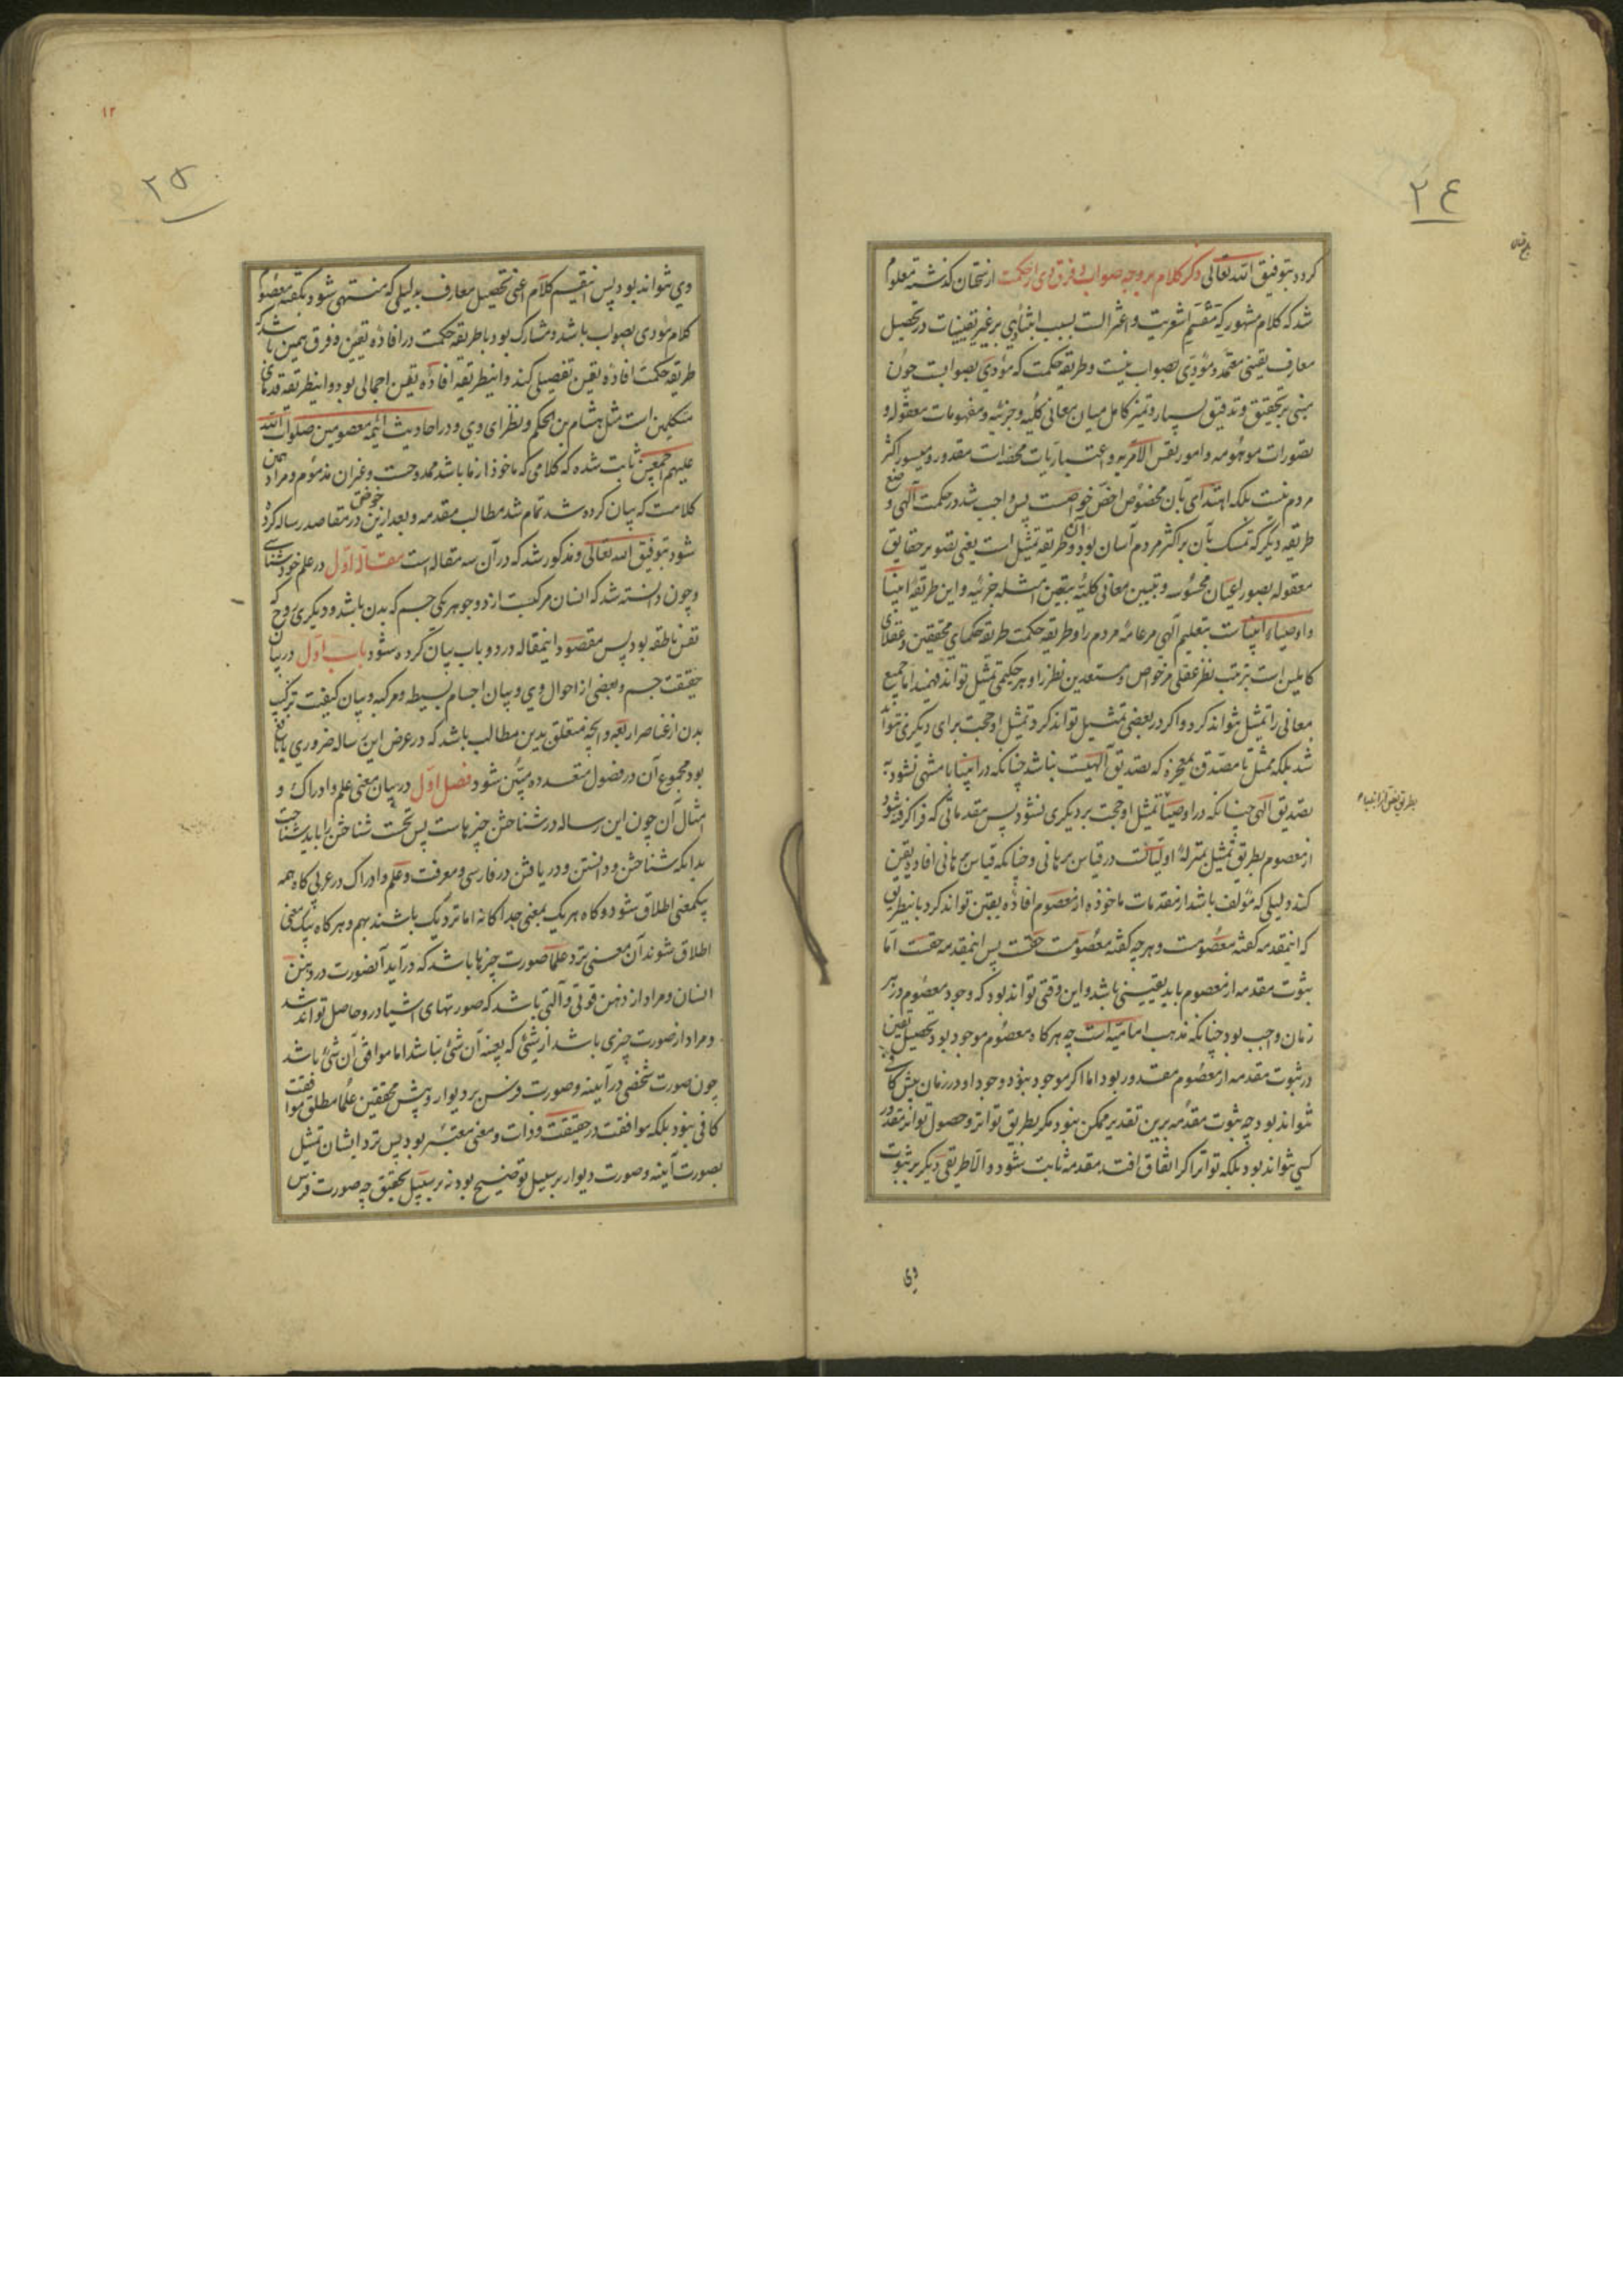 ٢٤
کردد بتوفیق الله تعالی ذکر کلام بر وجه صواب و فرق وی از حکمت از سخنان کذشته معلوم
شد که کلام مشهور که منقسم باشعریت و اعتزالست بسبب ابتنای وی بر غیر یقینیات در تحصیل
معارف یقینی معتمد و مؤدی بصواب نیست و طریقه حکمت که مؤدی بصوابست چون
مبنی بر تحقیق و تدقیق بسیار و تمیز کامل میان معانی کلیه و جزئیه و مفهومات معقوله و
تصورات موهومه و امور نفس الامریه و اعتباریات محضه است مقدور و میسور اکثر
مردم نیست بلکه اهتدای بآن مخصوص اخص خواصست پس واجب شد در حکمت آلهی وضع
طریقه دیکر که تمسک بآن بر اکثر مردم آسان بود و آن طریقه تمثیل است یعنی تصویر حقایق
معقوله بصور اعیان محسوسه و تبیین معانی کلیه بتعین امثله جزئیه و این طریقه انبیا
و اوصیاء انبیاست بتعلیم آلهی مر عامه مردم را و طریقه حکمت طریقه حکمای محققین و عقلای
کاملین است بترتیب نظر عقلی مر خواص و مستعدین نظر را و هر حکیمی تمثیل تواند فهمید اما جمیع
معانی را تمثیل نتواند کرد و اکر در بعضی تمثیل تواند کرد تمثیل او حجت برای دیکری نتواند
شد بلکه ممثل تا مصدق بمعجزه که تصدیق آلهیست نباشد چنانکه در انبیا یا منتهی نشود به
تصدیق آلهی چنانکه در اوصیا تمثیل او حجت بر دیکری نشود پس مقدماتی که فرا کرفته شود
بطریق نقل از انبیاء
از معصوم بطریق تمثیل بمنزله اولیاتست در قیاس برهانی و چنانکه قیاس برهانی افاده یقین
کند دلیلی که مؤلف باشد از مقدمات ماخوذه از معصوم افاده یقین تواند کرد باینطریق
که اینمقدمه کفته معصومست و هر چه کفته معصومست حقست پس اینمقدمه حقست اما
ثبوت مقدمه از معصوم باید یقینی باشد و این وقتی تواند بود که وجود معصوم در هر
زمان واجب بود چنانکه مذهب امامیه است چه هرکاه معصوم موجود بود تحصیل یقین
در ثبوت مقدمه از معصوم مقدور بود اما اکر موجود نبود وجود او در زمان پیش کافی
نتواند بود چه ثبوت مقدمه برین تقدیر ممکن نبود مکر بطریق تواتر و حصول تواتر مقدور
کسی نتواند بود بلکه تواتر اکر اتفاق افتد مقدمه ثابت شود و الا طریقی دیکر بر ثبوت
وی
١٢
٢٥
وی نتواند بود پس اینقسم کلام اعنی تحصیل معارف بدلیلی که منتهی شود بکفته معصوم
کلام مؤدی بصواب باشد و مشارک بود با طریقه حکمت در افاده یقین و فرق همین باشد که
طریقه حکمت افاده یقین تفصیلی کند و اینطریقه افاده یقین اجمالی بود و اینطریقه قدمای
متکلمین است مثل هشام بن الحکم و نظرای وی و در احادیث ائمه معصومین صلوات الله
علیهم اجمعین ثابت شده که کلامی که ماخوذ از ما باشد ممدوحست و غیر آن مذموم و مراد همین
کلامست که بیان کرده شد تمام شد مطالب مقدمه و بعد ازین خوض در مقاصد رساله کرده
شود بتوفیق الله تعالی و مذکور شد که در آن سه مقاله است مقاله اول در علم خودشناسی
و چون دانسته شد که انسان مرکبست از دو جوهر یکی جسم که بدن باشد و دیکری روح که
نفس ناطقه بود پس مقصود اینمقاله در دو باب بیان کرده شود باب اول در بیان
حقیقت جسم و بعضی از احوال وی و بیان اجسام بسیطه و مرکبه و بیان کیفیت ترکیب
بدن از عناصر اربعه و آنچه متعلق بدین مطالب باشد که در غرض این رساله ضروری یا نافع
بود مجموع آن در فصول متعدده مبین شود فصل اول در بیان معنی علم و ادراک و
امثال آن چون این رساله در شناختن چیزهاست پس نخست شناختن را باید شناخت
بدانکه شناختن و دانستن و دریافتن در فارسی و معرفت و علم و ادراک در عربی کاه همه
بیکمعنی اطلاق شود و کاه هر یک بمعنی جداکانه اما نزدیک باشند بهم و هرکاه بیک معنی
اطلاق شوند آن معنی نزد علما صورت چیزها باشد که در آید آنصورت در ذهن
انسان و مراد از ذهن قوتی و آلتی باشد که صورتهای اشیا در و حاصل تواند شد
و مراد از صورت چیزی باشد از شئ که بعینه آن شئ نباشد اما موافق آن شئ باشد
چون صورت شخص در آیینه و صورت فرس بر دیوار و پیش محققین علما مطلق موافقت
کافی نبود بلکه موافقت در حقیقت و ذات و معنی معتبر بود پس نزد ایشان تمثیل
بصورت آینه و صورت دیوار بر سبیل توضیح بود نه بر سبیل تحقیق چه صورت فرس